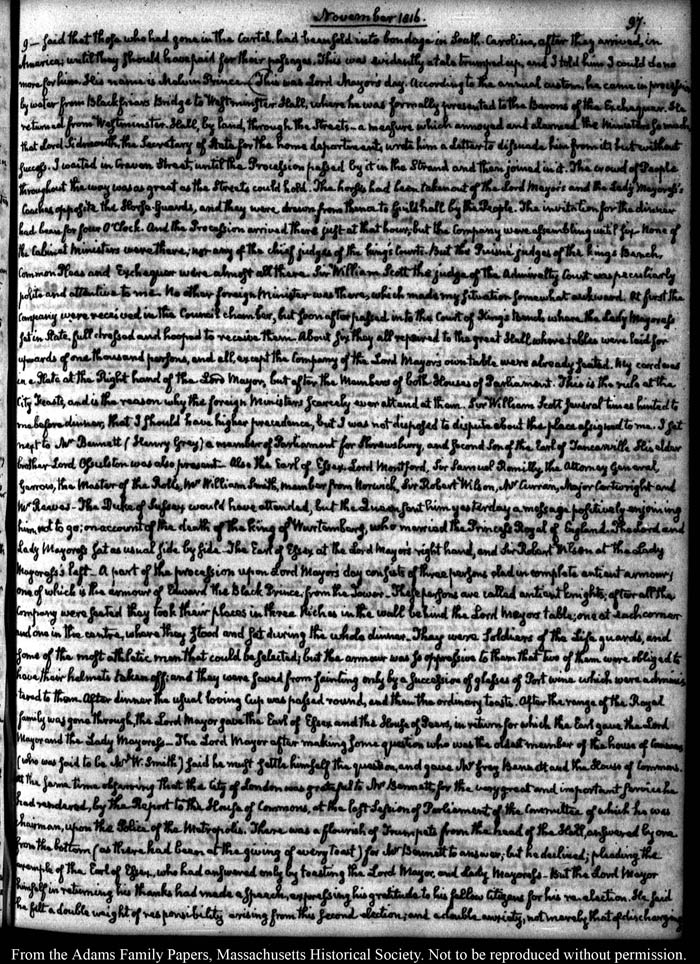 November 1816.
97.
9— said that those who had gone in the Cartel, had been sold into bondage in South-Carolina, after they arrived, in
America; until they should have paid for their passages. This was evidently a tale trumped up, and I told him I could do no
more for him. His name is Prince— This was Lord Mayor's day. According to the annual custom, he came in procession
by water from Blackfriars Bridge to Westminster Hall, where he was formally presented to the Barons of the Exchequer. He
returned from Westminster Hall, by land, through the Streets— a measure which annoyed and alarmed the Ministers so much,
that Lord Sidmouth, the Secretary of State for the home department, wrote him a letter to dissuade him from it; but without
success. I waited in Craven Street, until the Procession passed by it in the Strand and then joined in it. The crowd of People
throughout the way was as great as the Streets could hold. The horses had been taken out of the Lord Mayor's and the Lady Mayoress's
Coaches opposite the Horse-Guards, and they were drawn from thence to Guildhall by the People. The invitation for the dinner
had been for four O'Clock. And the Procession arrived there just at that hour; but the Company were assembling until six. None of
the Cabinet Ministers were there; nor any of the chief judges of the king's Courts. But the Puisné judges of the kings Bench,
Common Pleas and Exchequer were almost all there. Sir William Scott the judge of the Admiralty Court was peculiarly
polite and attentive to me. No other foreign Minister was there, which made my situation somewhat awkward. At first the
Company were received in the Council chamber, but soon after passed into the Court of King's Bench where the Lady Mayoress
sat in State, full dressed and hooped to receive them. About six they all repaired to the great Hall, where tables were laid for
upwards of one thousand persons, and all except the Company of the Lord Mayor's own table were already seated. My card was
in a Plate at the Right hand of the Lord Mayor, but after the Members of both Houses of Parliament. This is the rule at the
City Feasts, and is the reason why the foreign Ministers scarcely ever attend at them. Sir William Scott several times hinted to
me before dinner, that I should have higher precedence, but I was not disposed to dispute about the place assigned to me. I sat
next to Mr Bennett (Henry Grey) a member of Parliament for Shrewsbury, and second Son of the Earl of Tancarville. His elder
brother Lord Ossulston was also present— Also the Earl of Essex, Lord Montford, Sir Samuel Romilly, the Attorney General,
Garrow, the Master of the Rolls, Mr William Smith, member from Norwich, Sir Robert Wilson, Mr Curran, Major Cartwright and
Mr Reeves— The Duke of Sussex would have attended, but the Queen sent him yesterday a message positively enjoining
him, not to go; on account of the death of the king of Wurtemburg, who married the Princess Royal of England. The Lord and
Lady Mayoress sat as usual side by side— The Earl of Essex at the Lord Mayor's right hand, and Sir Robert Wilson at the Lady
Mayoress's left— A part of the procession upon Lord Mayor's day consists of three persons clad in complete antient armour;
one of which is the armour of Edward the Black Prince, from the Tower— These persons are called antient knights; after all the
Company were seated they took their places in three niches in the wall behind the Lord Mayor's table; one at each corner
and one in the centre, where they stood and sat during the whole dinner. They were Soldiers of the Life guards, and
some of the most athletic men that could be selected; but the armour was so oppressive to them that two of them were obliged to
have their helmets taken off; and they were saved from fainting only by a succession of glasses of Port wine which were adminis-
tered to them. After dinner the usual loving Cup was passed round, and then the ordinary toasts. After the range of the Royal
family was gone through, the Lord Mayor gave the Earl of Essex and the House of Peers, in return for which the Earl gave the Lord
Mayor and the Lady Mayoress— The Lord Mayor after making some question who was the oldest member of the house of Commons
(who was said to be Mr W. Smith) said he must settle himself the question, and gave Mr Grey Bennett and the House of Commons.
At the same time observing that the City of London was grateful to Mr Bennett, for the very great and important services he
had rendered, by the Report to the House of Commons, at the last Session of Parliament of the Committee of which he was
chairman, upon the Police of the Metropolis. There was a flourish of Trumpets from the head of the Hall, answered by one
from the bottom (as there had been at the giving of every Toast) for Mr Bennett to answer; but he declined; pleading the
example of the Earl of Essex, who had answered only by toasting the Lord Mayor, and Lady Mayoress. But the Lord Mayor
himself in returning his thanks had made a speech, expressing his gratitude to his fellow Citizens for his re-election. He said
he felt a double weight of responsibility arising from this second election; and a double anxiety, not merely that of discharging
From the Adams Family Papers, Massachusetts Historical Society. Not to be reproduced without permission.